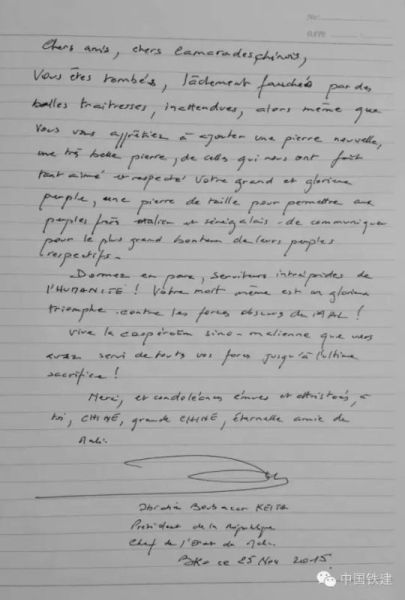 Chers amis, chers Camarades chinois,
Vous êtes tombés, lâchement fauchés par des
balles traitresses, inattendues, alors même que
vous vous apprêtiez à ajouter une pierre nouvelle,
une très belle pierre, de celles qui nous ont fait
tant aimé et respecté votre grand et glorieux
peuple, une pierre de taille pour permettre aux
peuples frères malien et sénégalais de communiquer
pour le plus grand bonheur de leurs peuples
respectifs.
Dormez en paix, serviteurs intrépides de
l'HUMANITÉ ! Votre mort même est un glorieux
triomphe contre les forces obscures du MAL !
Vive la coopération sino-malienne que vous
avez servi de toutes vos forces jusqu'à l'ultime
sacrifice !
Merci, et condoléances émues et attristées, à
toi, CHINE, grande CHINE, éternelle amie du
Mali.
Ibrahim Boubacar KEITA
Président de la République
Chef de l'Etat du Mali
BKo ce 25 Nov 2015.
中国铁建